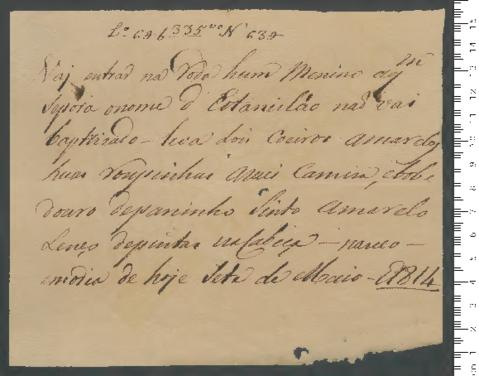 Vai entrar na Roda hum Menino a q.m
se porá o nome d' Estanislão naõ vai
baptizado - leva dois Coeiros amarelos
hum roupinha mais Camiza, e bobe
douro de paninho Sinto amarelo
Lenço de pintas na Cabeça - nasceo -
em o dia de hoje Sete de Maio - E 1814